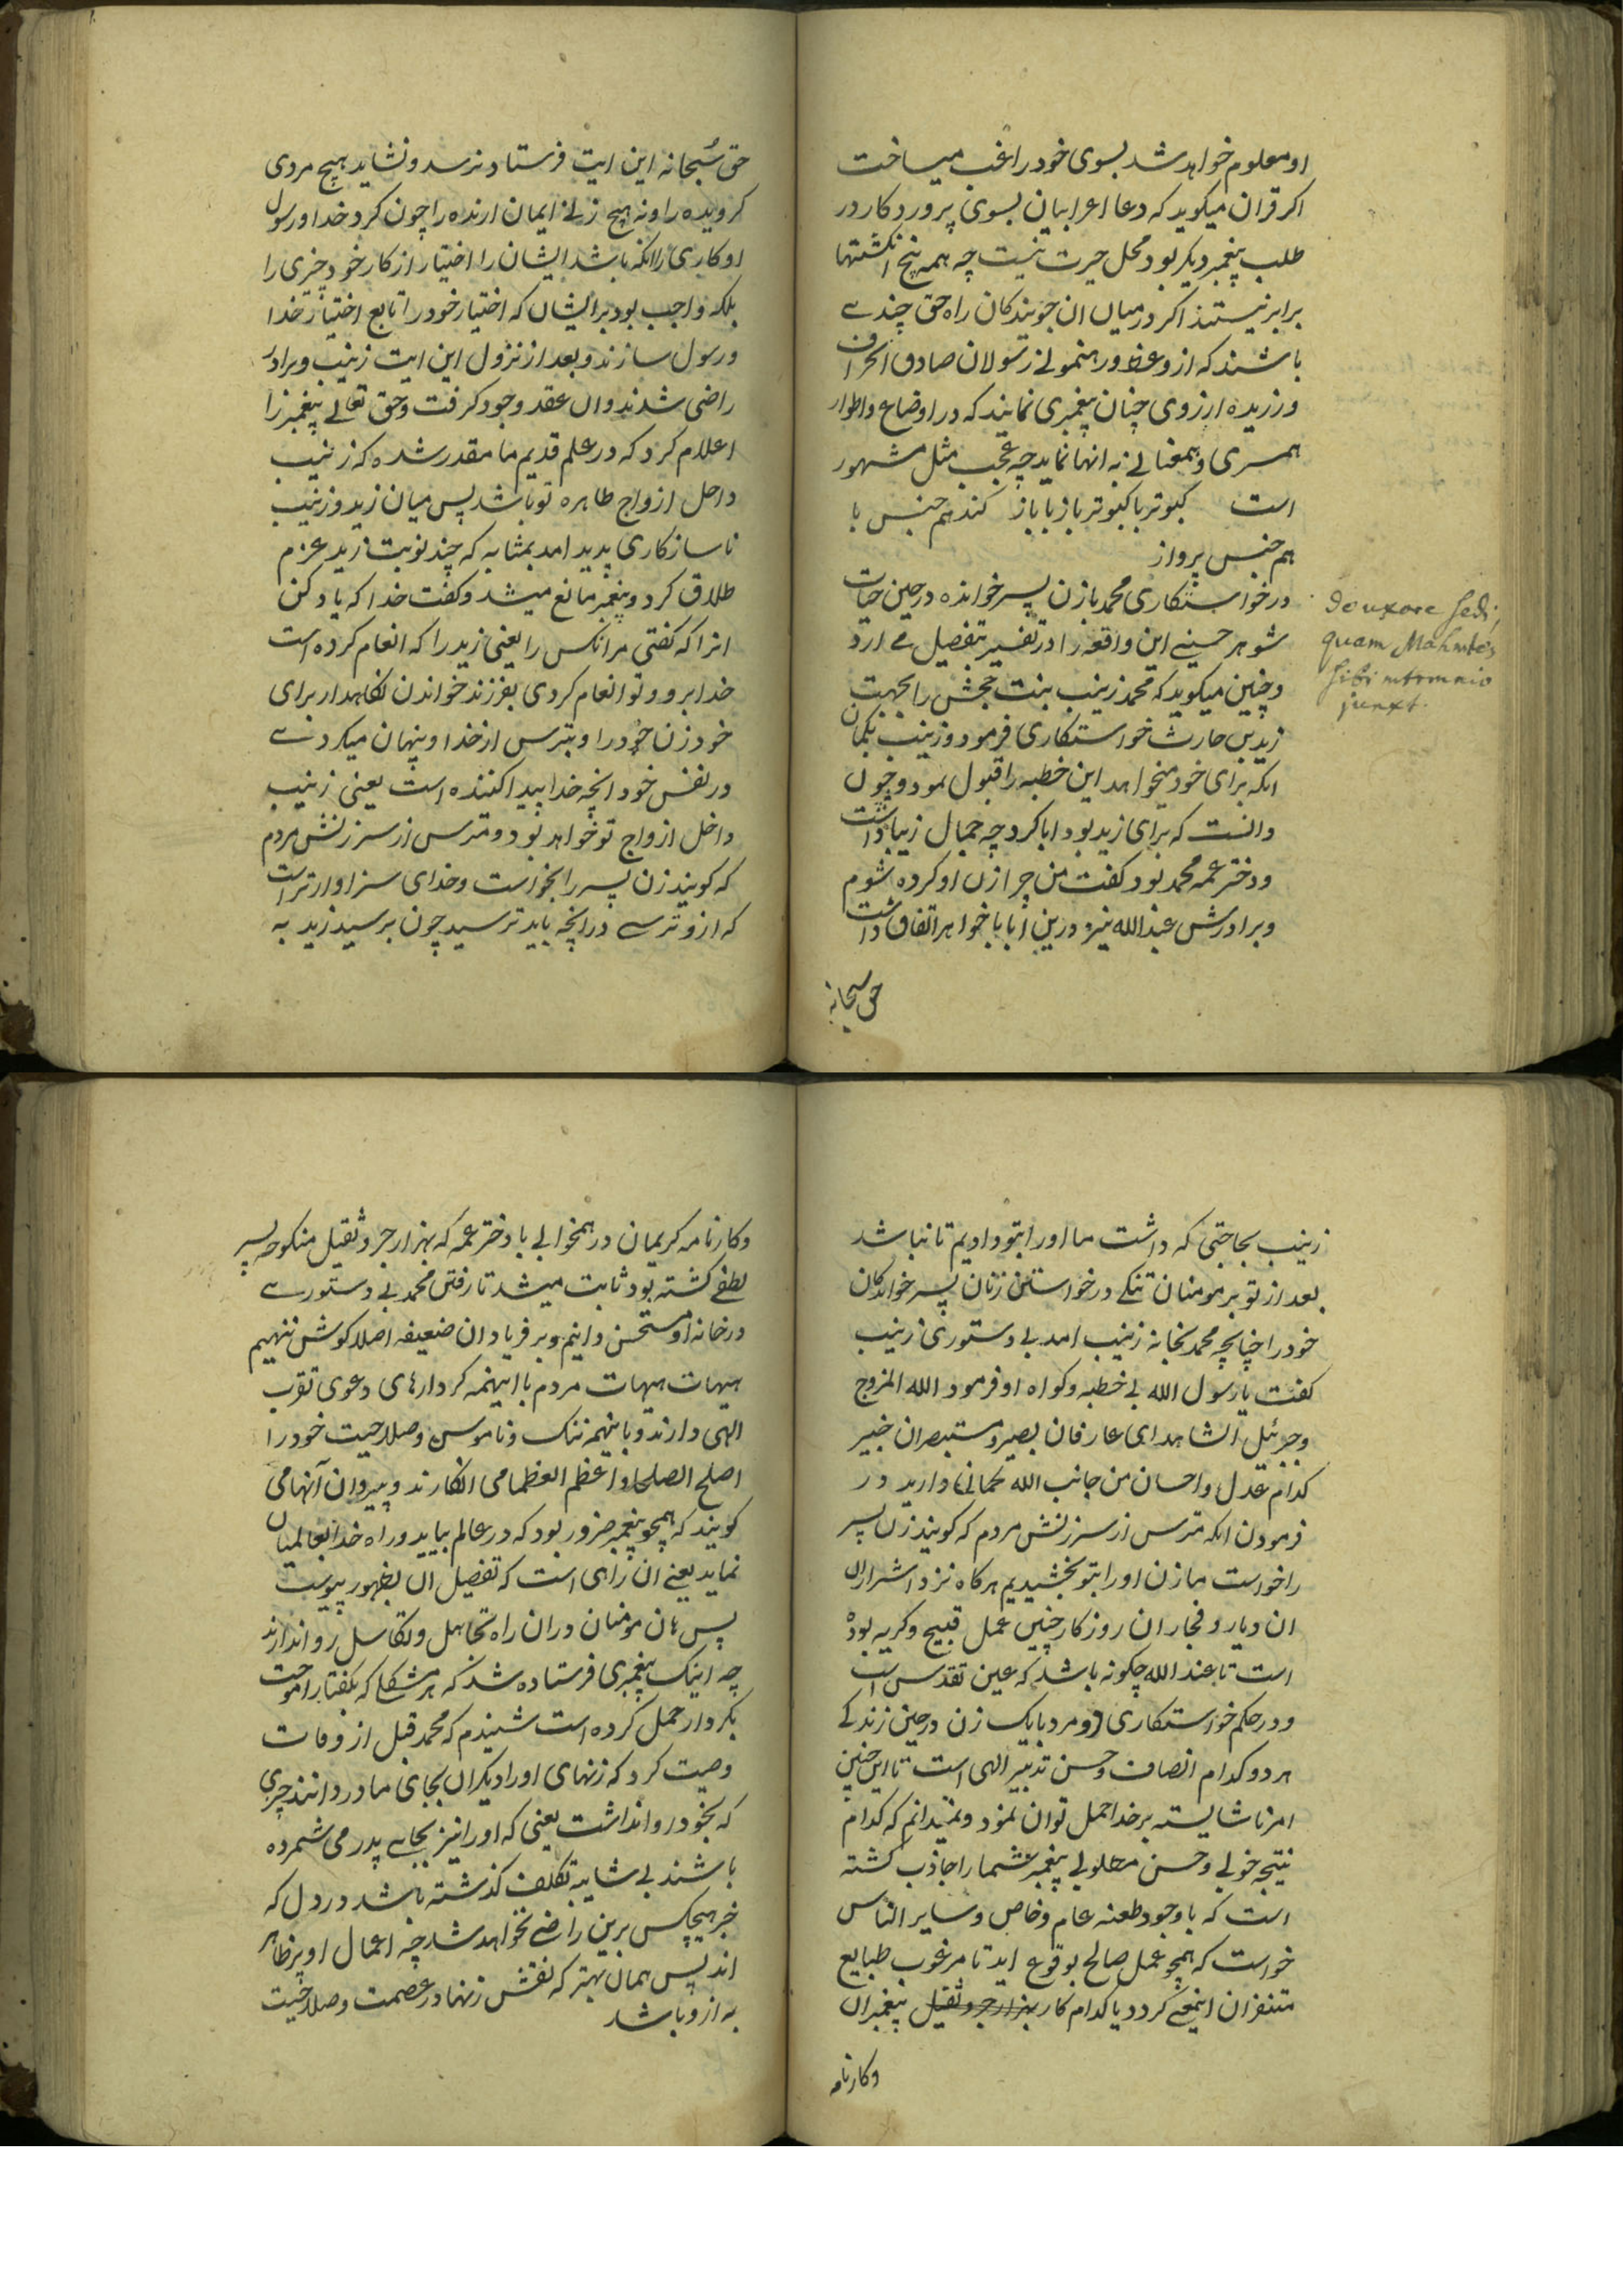 او معلوم خواهد شد بسوی خود راغب میساخت
اکر قران میکوید که دعا اعرابیان بسوی پروردکار در
طلب پیغمبر دیکر بود محل حیرت نیست چه همه پنج انکشتها
برابر نیستند اکر درمیان ان جویندکان راه حق چندے
باشند که از وعظ و رهنمولے رسولان صادق انحراف
ورزیده ارزوی چنان پیغمبری نمایند که در اوضاع و اطوار
همسری و همعنالے به انها نماید چه عجب مثل مشهور
است کبوتر با کبوتر باز با باز کند هم جنس با
هم جنس پرواز
درخواستکاری محمد با زن پسر خوانده در حین حیات
شوهر حسینے این واقعه را در تفسیر بتفصیل مے ارد
و چنین میکوید که محمد زینب بنت حجش را بجهت
زید بن حارث خواستکاری فرمود و زینب بکمان
انکه برای خود میخواهد این خطبه را قبول نمود و چون
دانست که برای زید بود ابا کرد چه جمال زیبا داشت
و دختر عمه محمد بود کفت من چرا زن او کرده شوم
و برادرش عبد الله نیز درین ابا با خواهر اتفاق داشت
حق سبحانه
De uxore Sedi,
quam Mahmtes
sibi mtrmnio
junxt.
حق سُبحانه این ایت فرستاد نرسد و نشاید هیچ مردی
کرویده را و نه هیچ زنے ایمان ارنده را چون کرد خدا و رسول
او کاری را انکه باشد ایشان را اختیار از کار خود چیزی را
بلکه واجب بود بر ایشان که اختیار خود را تابع اختیار خدا
و رسول سازند و بعد از نزول این ایت زینب و برادر
راضی شدند و ان عقد وجود کرفت و حق تعالے پیغمبر را
اعلام کرد که در علم قدیم ما مقدر شده که زینب
داخل ازواج طاهره تو باشد پس میان زید و زینب
ناسازکاری پدید امد بمثابه که چند نوبت زید عزم
طلاق کرد و پیغمبر مانع میشد و کفت خدا که یاد کن
انرا که کفتی مر انکس را یعنی زید را که انعام کرده است
خدا برو و تو انعام کردی بفرزند خواندن نکاهدار برای
خود زن خود را و بترس از خدا و پنهان میکردے
در نفس خود انچه خدا پیدا کننده است یعنی زینب
داخل ازواج تو خواهد بود و مترس از سرزنش مردم
که کویند زن پسر را بخواست و خدای سزاوارتر است
که ازو ترسے در انچه باید ترسید چون برسید زید به
زینب بحاجتی که داشت ما او را بتو دادیم تا نباشد
بعد از تو بر مومنان تنکے درخواستن زنان پسر خواندکان
خود را چنانچه محمد بخانه زینب امد بی دستوری زینب
کفت یا رسول الله بی خطبه و کواه او فرمود الله المزوج
و جرئیل الشاهد ای عارفان بصیر و مستبصران خبیر
کدام عدل و احسان من جانب الله کمانها دارید در
فرمودن انکه مترس از سرزنش مردم که کویند زن پسر
را خواست ما زن او را بتو بخشیدیم هرکاه نزد اشراران
ان دیار و فجار ان روزکار چنین عمل قبیح و کریه بوده
است تا عند الله چکونه باشد که عین تقدس است
و در حکم خواستکاری دو مرد با یک زن در حین زندکے
هر دو کدام انصاف و حسن تدبیر الهی است تا این چنین
امر ناشایسته بر خدا حمل توان نمود و نمیدانم که کدام
نتیجه خولے و حسن مطلولے پیغمبر شما را جاذب کشته
است که با وجود طعنه عام و خاص و سایر الناس
خواست که همچو عمل صالح بوقوع اید تا مرغوب طبایع
متنفران اینمعنے کردد یا کدام کار بهزار جر و ثقیل پیغمبران
وکارنامه
وکارنامه کریمان در همخوابے با دختر عمه که بهزار جر و ثقیل منکوحه پسر
لطفے کشته بود ثابت میشد تا رفتن محمد بی دستورے
در خانه او مستحسن دانیم و بر فریاد ان ضعیفه اصلا کوش ننهیم
هیهات هیهات مردم با اینهمه کردارهای دعوی تقرب
الهی دارند و با اینهمه ننک و ناموس و صلاحیت خود را
اصلح الصلحا و اعظم العظما می انکارند و پیروان آنها می
کویند که همچو پیغمبر ضرور بود که در عالم بیاید و راه خدا بعالمیان
نماید یعنے ان راهی است که تفصیل ان بظهور پیوست
پس هان مومنان دران راه تجاهل و تکاسل روا ندارند
چه اینک پیغمبری فرستاده شد که هر مشکل که بکفتار اموخت
بکردار حمل کرده است شنیدم که محمد قبل از وفات
وصیت کرد که زنهای او را دیکران بجای مادر دانند چیزی
که بخود روا نداشت یعنی که او را نیز بجاے پدر می شمرده
باشند بی شایبه تکلف کذشته باشد در دل که
خبر هیچکس برین راضے نخواهد شد چه اعمال او بر ظاهر
اند پس همان بهتر که نقش زنها در عصمت و صلاحیت
به ازو باشد